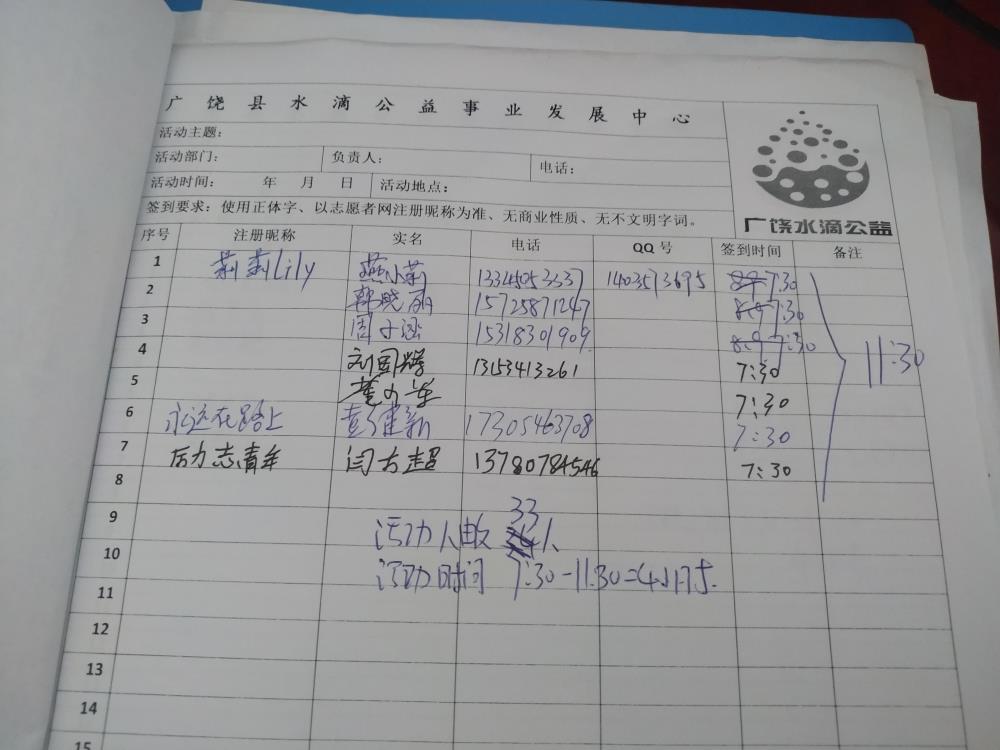 广饶县水滴公益事业发展中心
活动主题：
活动部门： 负责人： 电话：
活动时间： 年 月 日 活动地点：
签到要求：使用正体字、以志愿者网注册昵称为准、无商业性质、无不文明字词。
广饶水滴公益
序号 注册昵称 实名 电话 QQ号 签到时间 备注
1 莉莉Lily 燕小莉 13345053337 1403573695 7:30
2 韩晓丽 15725871247 7:30
3 周子涵 15318301909 7:30
4 刘国辉 13153413261 7:30
5 董小华 7:30
6 永远在路上 建新 17305463708 7:30
7 励志青年 闫志超 13780784546 7:30
11:30
8
9 活动人数 33人
10 活动时间 7:30-11:30=4小时
11
12
13
14
15